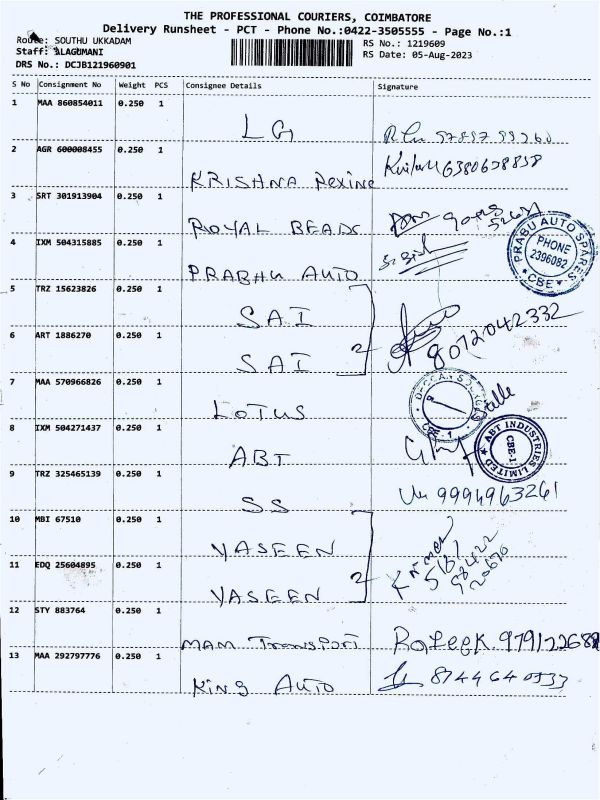 THE PROFESSIONAL COURIERS, COIMBATORE
Delivery Runsheet - PCT - Phone No.:0422-3505555 - Page No.:1
Route: SOUTHU UKKADAM
RS No.: 1219609
Staff: ALAGUMANI
RS Date: 05-Aug-2023
DRS No.: DCJB121960901
S No Consignment No Weight PCS Consignee Details Signature
1 MAA 860854011 0.250 1 LG
2 AGR 600008455 0.250 1 KRISHNA Rexine 6380658858
3 SRT 301913904 0.250 1 ROYAL BEADS
4 IXM 504315885 0.250 1 PRABHU AUTO
PRABU AUTO SPARES
PHONE
2396082
CBE
5 TRZ 15623826 0.250 1 SAI
6 ART 1886270 0.250 1 SAI 2 8072042332
7 MAA 570966826 0.250 1 LOTUS
CBE 1
8 IXM 504271437 0.250 1 ABT
ABT INDUSTRIES LIMITED
CBE-1
9 TRZ 325465139 0.250 1 SS 9994963261
10 MBI 67510 0.250 1 YASEEN
11 EDQ 25604895 0.250 1 YASEEN 2
12 STY 883764 0.250 1 MAM Transport Rafeek
13 MAA 292797776 0.250 1 KING AUTO